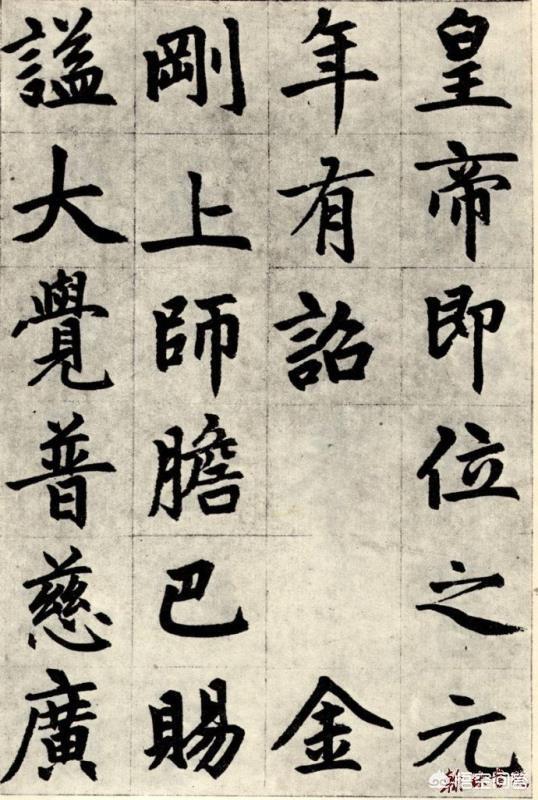 皇帝即位之元
年有詔金
剛上師膽巴賜
謚大覺普慈廣
悟空问答